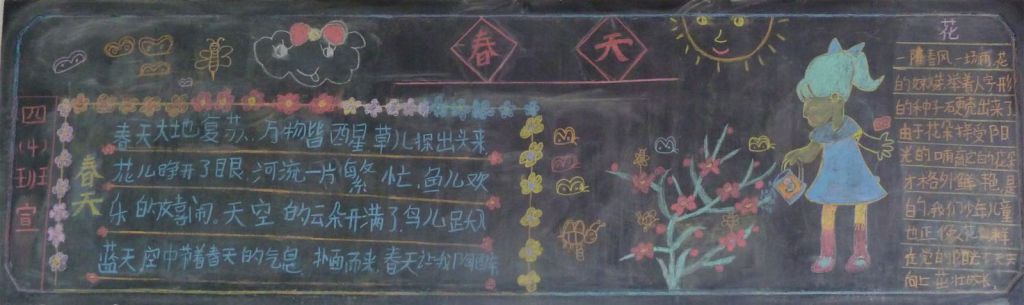 春天
四(4)班宣
春天
春天大地复苏，万物皆酉星草儿探出头来
花儿睁开了眼，河流一片繁忙，鱼儿欢
乐的嬉闹，天空的云朵开满了，鸟儿
蓝天空中带着春天的气息，扑面而来，春天让我们
花
一阵春风一场雨，花
的
的种子破壳出来了
由于花朵接受阳
光的哺育，它的花朵
才格外鲜艳，是
的，我们少年儿童
也正像花一样
在它的
向上茁壮成长